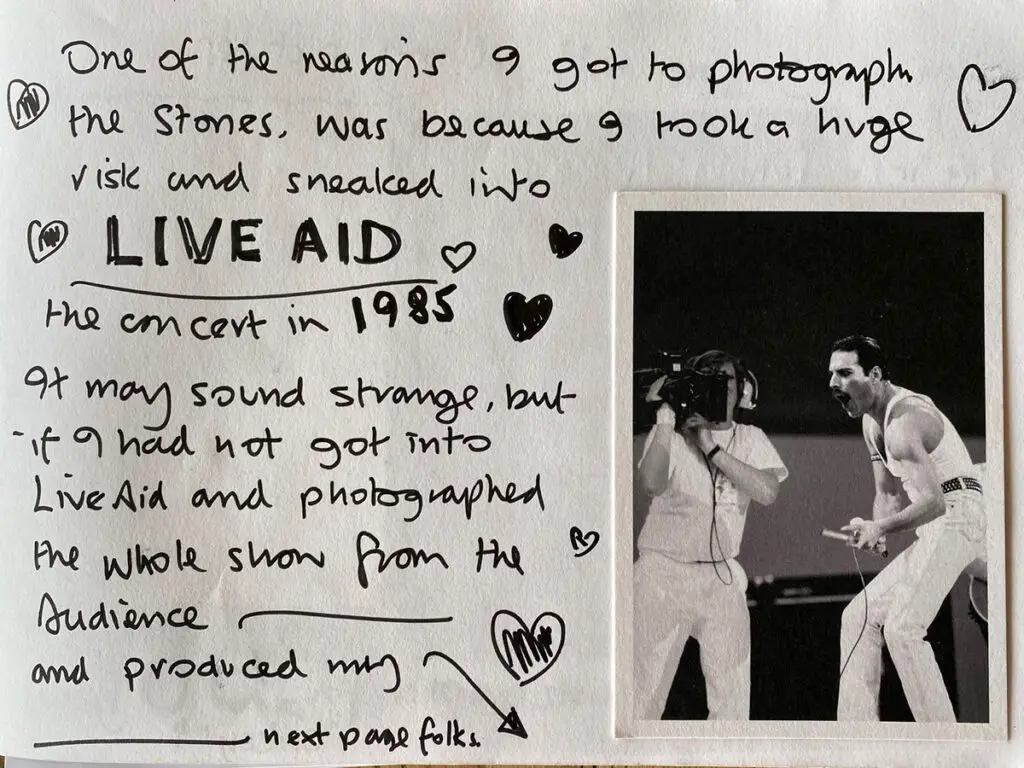 One of the reasons I got to photograph
the Stones, was because I took a huge
risk and sneaked into
LIVE AID
the concert in 1985
It may sound strange, but
if I had not got into
Live Aid and photographed
the whole show from the
Audience
and produced my
next page folks.